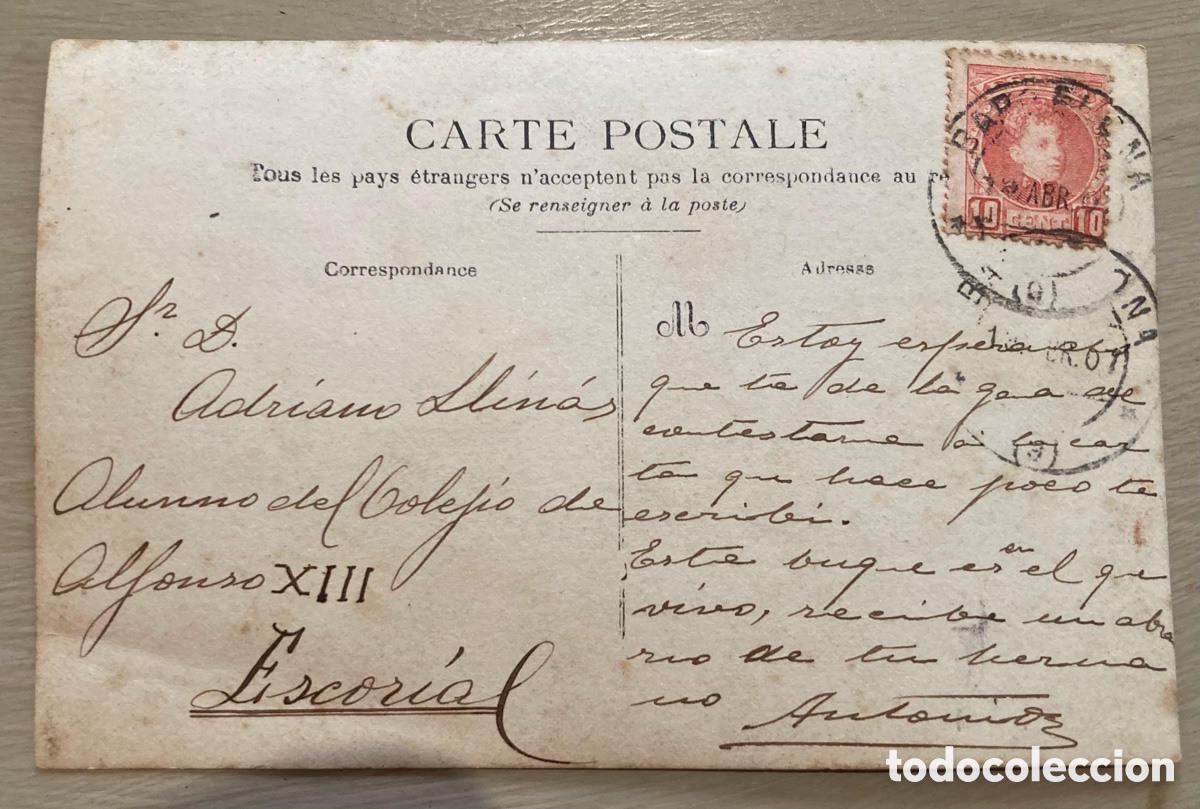 CARTE POSTALE
Tous les pays étrangers n'acceptent pas la correspondance au
(Se renseigner à la poste)
BARCELONA
ABR.
10 CENT 10
(9)
Correspondance
Adresse
Sr. D.
Adriano Llinás
Alunno del Colejio de
Alfonso XIII
Escorial
M Estoy esperando
que te de la gana de
contestarme a la car
ta que hace poco te
escribi.
Este buque es en el que
vivo, recibe un abra
zo de tu herma
no Antonio
BR.07
(9)
todocoleccion